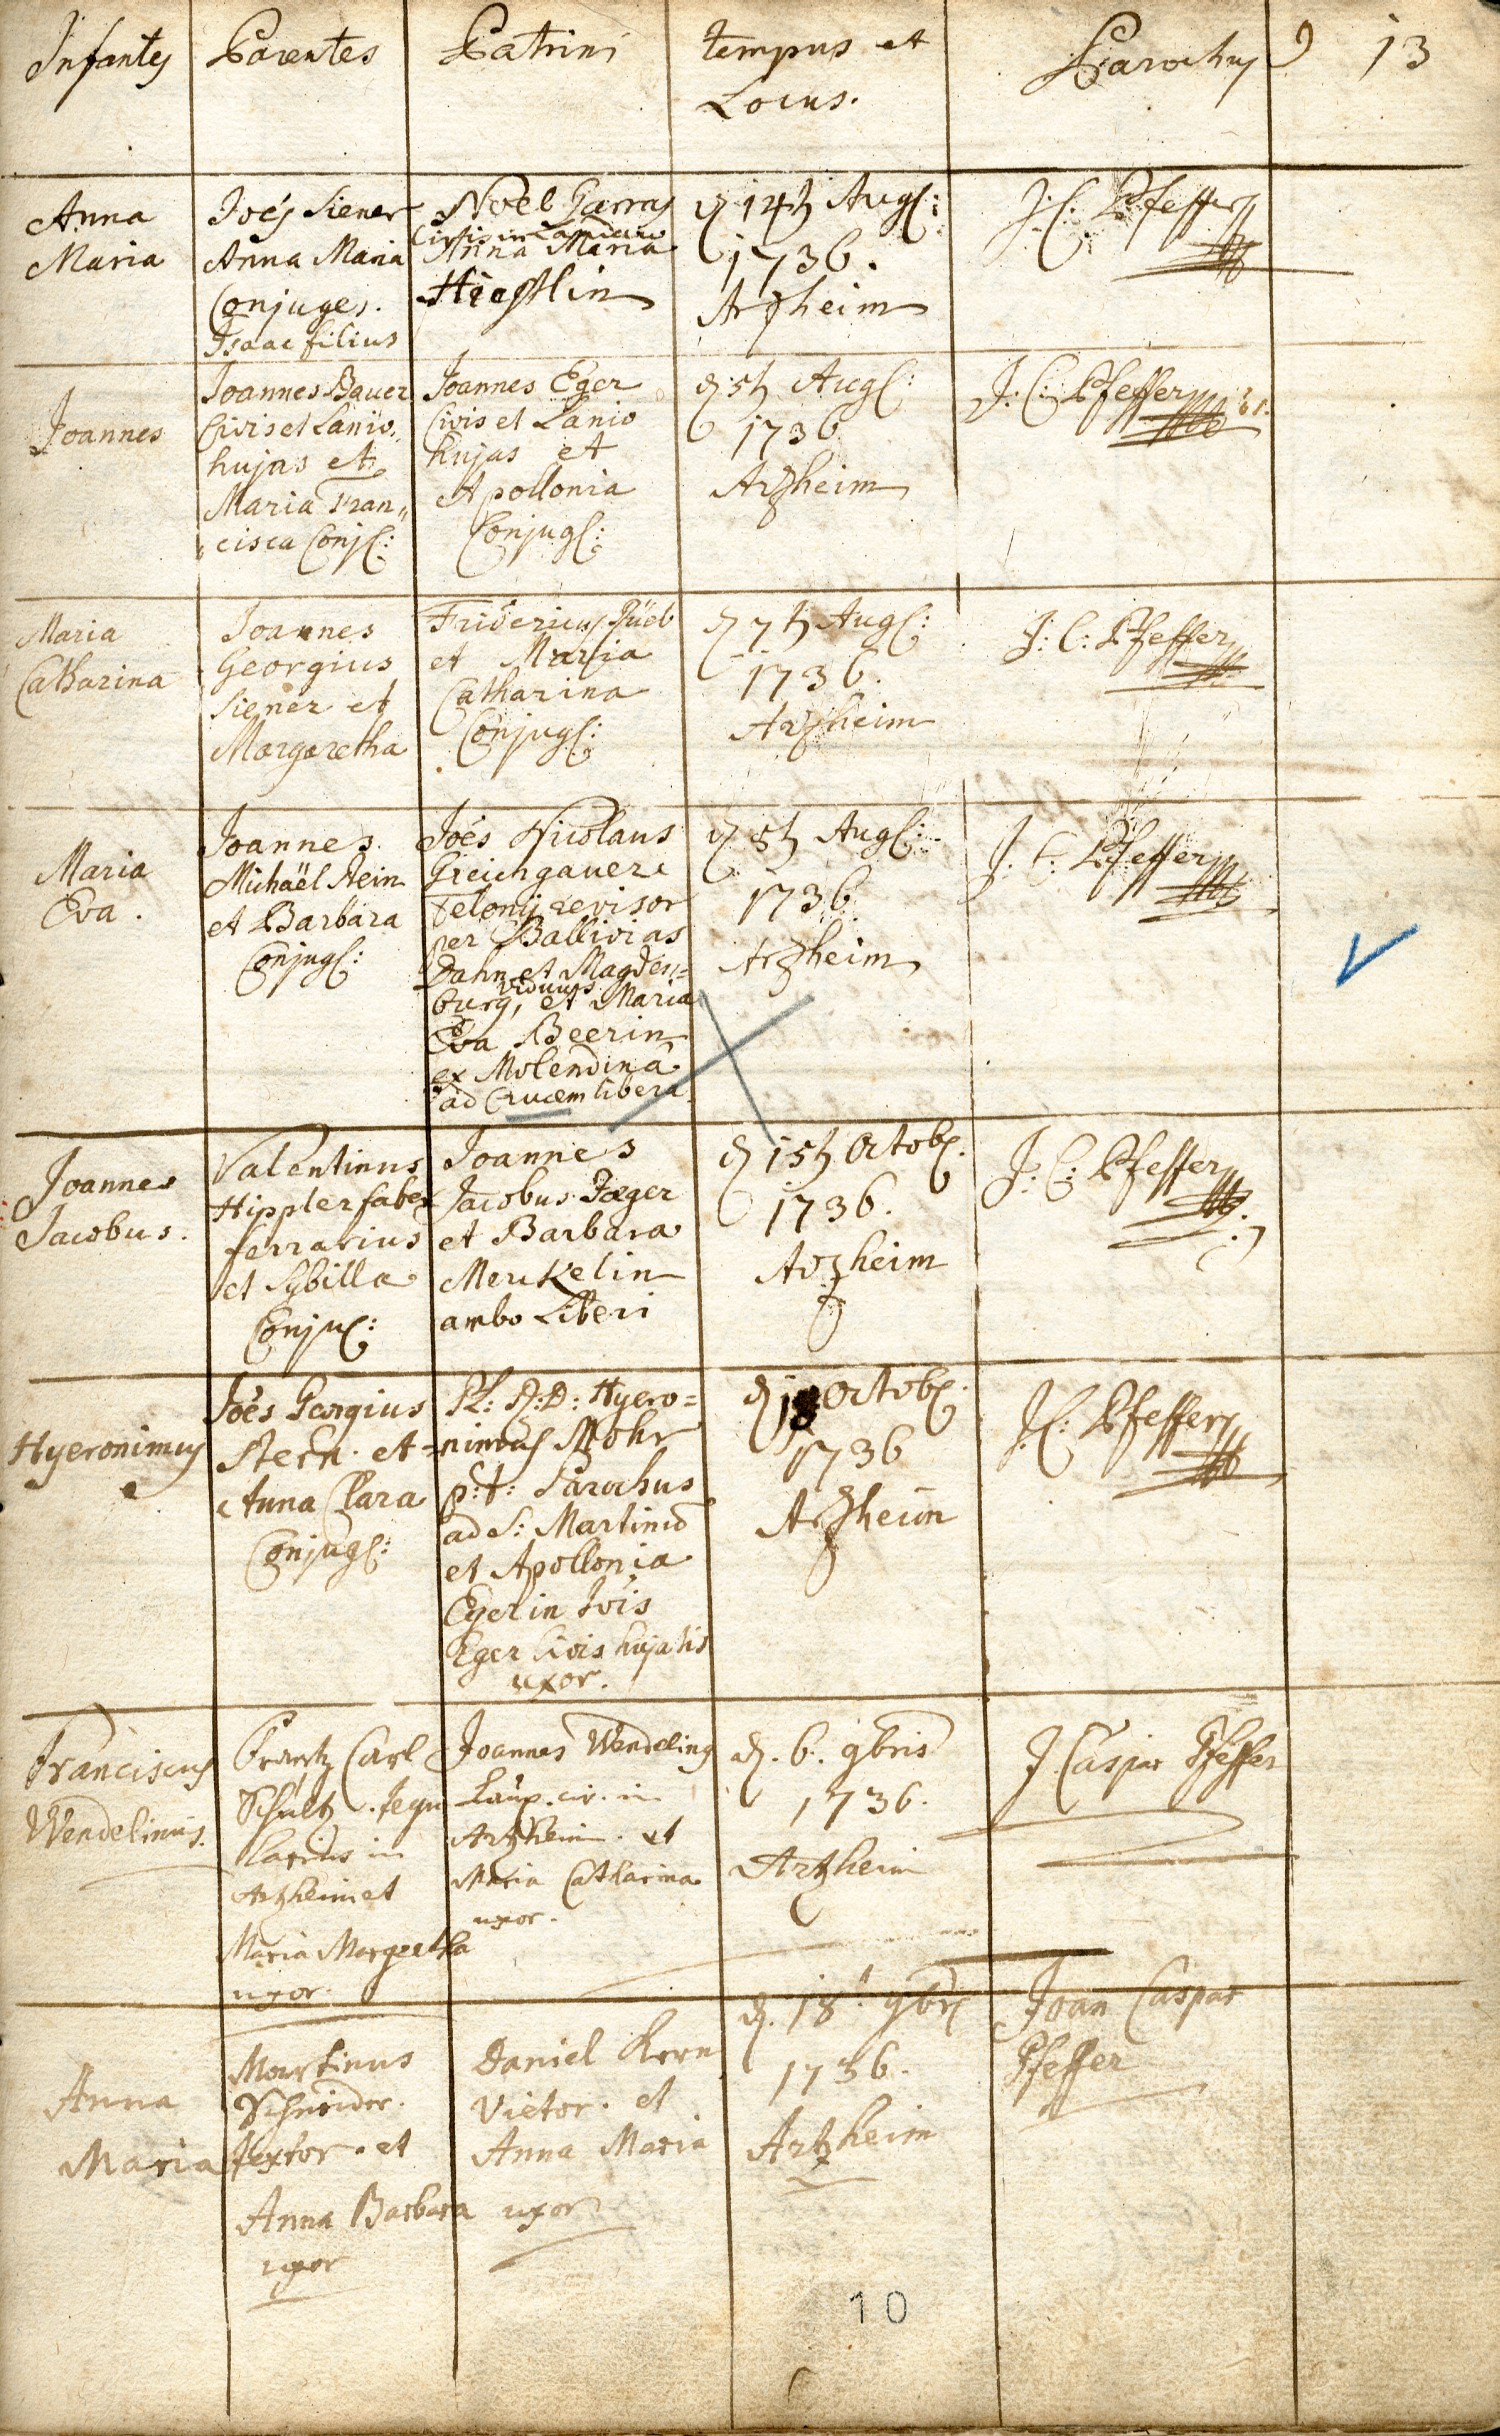 Infantes
Parentes
Patrini
tempus et
Locus.
Parochus
9
13
Anna
Maria
Joes Siener
Anna Maria
Conjuges.
Isaac filius
Noël
Civis in
Anna Maria
d 14t Aug:
1736.
Arzheim
J: C: Pfeffer
Joannes
Joannes Bauer
Civis et Lanio
hujas et
Maria Fran„
„cisca Conj:
Joannes Eger
Civis et Lanio
hujas et
Apollonia
Conjug:
d 5t Aug:
1736
Arzheim
J: C: Pfeffer
Maria
Catharina
Joannes
Georgius
Siener et
Margaretha
Fridericus
et Maria
Catharina
Conjug:
d 7t Aug:
1736.
Arzheim
J: C: Pfeffer
Maria
Eva.
Joannes
Michaël Stein
et Barbara
Conjug:
Joes Nicolaus
Greichgauer
Telonij revisor
per Ballivias
Dahn et Magden=
viduus
burg, et Maria
Eva Beerin
ex Molendina
ad Crucem libera
d 5t Aug:
1736
Arzheim
J: C: Pfeffer
Joannes
Jacobus.
Valentinus
Hippler faber
ferrarius
et Sybilla
Conju:
Joannes
Jacobus Jæger
et Barbara
Merkelin
ambo Liberi
d 15t Octob.
1736.
Arzheim
J: C: Pfeffer
Hyeronimus
Joes Georgius
Stern et
Anna Clara
Conjug:
Pl: R: D: Hyero=
nimus Mohr
p: t: Parochus
ad S: Martinu
et Apollonia
Egerin Jois
Eger Civis hujatis
uxor.
d 18 Octob.
1736
Arzheim
J: C: Pfeffer
Franciscus
Wendelinus.
Frantz Carl
Schultz. tegu
larius in
Artzheim et
Maria Margretha
uxor.
Joannes Wendeling
Laup. civ. in
Artzheim. et
Maria Catharina
uxor.
d. 6. 9bris
1736.
Artzheim
J Caspar Pfeffer
Anna
Maria
Martinus
Schneider.
textor. et
Anna Barbara
uxor
Daniel Kern
Vietor. et
Anna Maria
uxor
d. 18t 9bris
1736.
Artzheim
Joan Caspar
Pfeffer
10